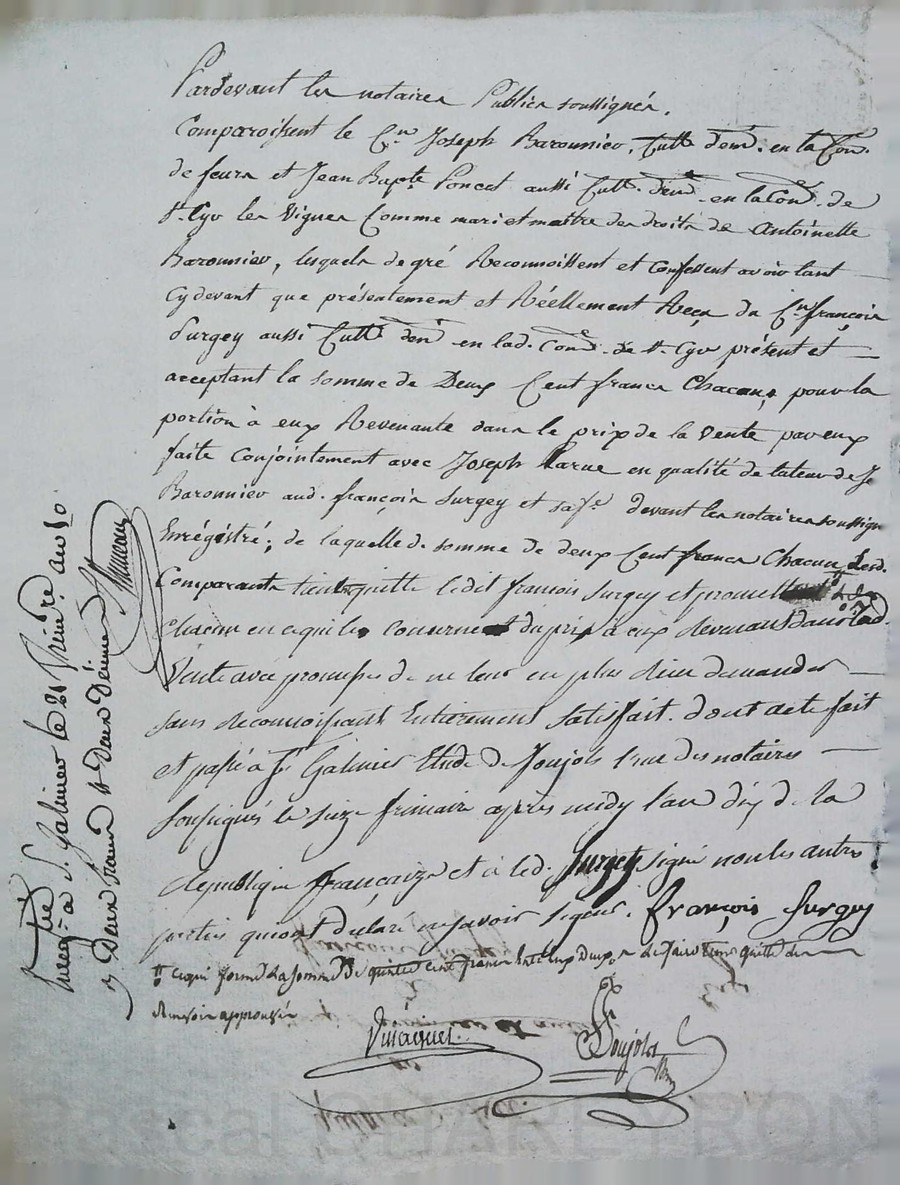 Pardevant les notaires Publics soussignés,
Comparoissent le Cn. Joseph Baronnier, Cultr. demt. en la Con.
de feurs et Jean Bapte. Poncet aussi Cultr. demt. en la Cone. de
St. Cyr les Vignes Comme mari et maitre des droits de Antoinette
Baronnier, lesquels de gré Reconnoissent et Confessent avoir tant
Cy devant que présentement et Réellement Reçu du Cn. françois
Surgey aussi Cultr. demt. en lad. Cone. de St. Cyr présent et
acceptant la somme de Deux Cent francs Chacuns, pour la
portion à eux Revenante dans le prix de la Vente par eux
faite Conjointement avec Joseph Larue en qualité de tuteur de Je
Baronnier aud. françois Surgey et sa fe. devant les notaires soussign
Enrégistré; de laquelle d. somme de deux Cent francs Chacun Lesd.
Comparants tient quitte ledit francois Surgey et promettent
Chacun en ce qui les concernent du prix à eux devenant dans Lad.
Vente avec promesse de ne leur en plus rien demander
sans reconnoissant Entierement satisfait. dont acte fait
et passé à St. Galmier Etude de Soujols l'un des notaires
soussignés le seize frimaire après midy l'an dix de la
République francaize et a led. Surgey signé non les autres
parties qui ont declaré ne savoir signer. françois Surgey
ce qui forme la somme de quatre cent francs Entr'eux Deux
approuvés
Vinaquet
Soujols
Enregtré. a St. galmier le 21 frimre. an 10.
Deux francs & Deux Décimes